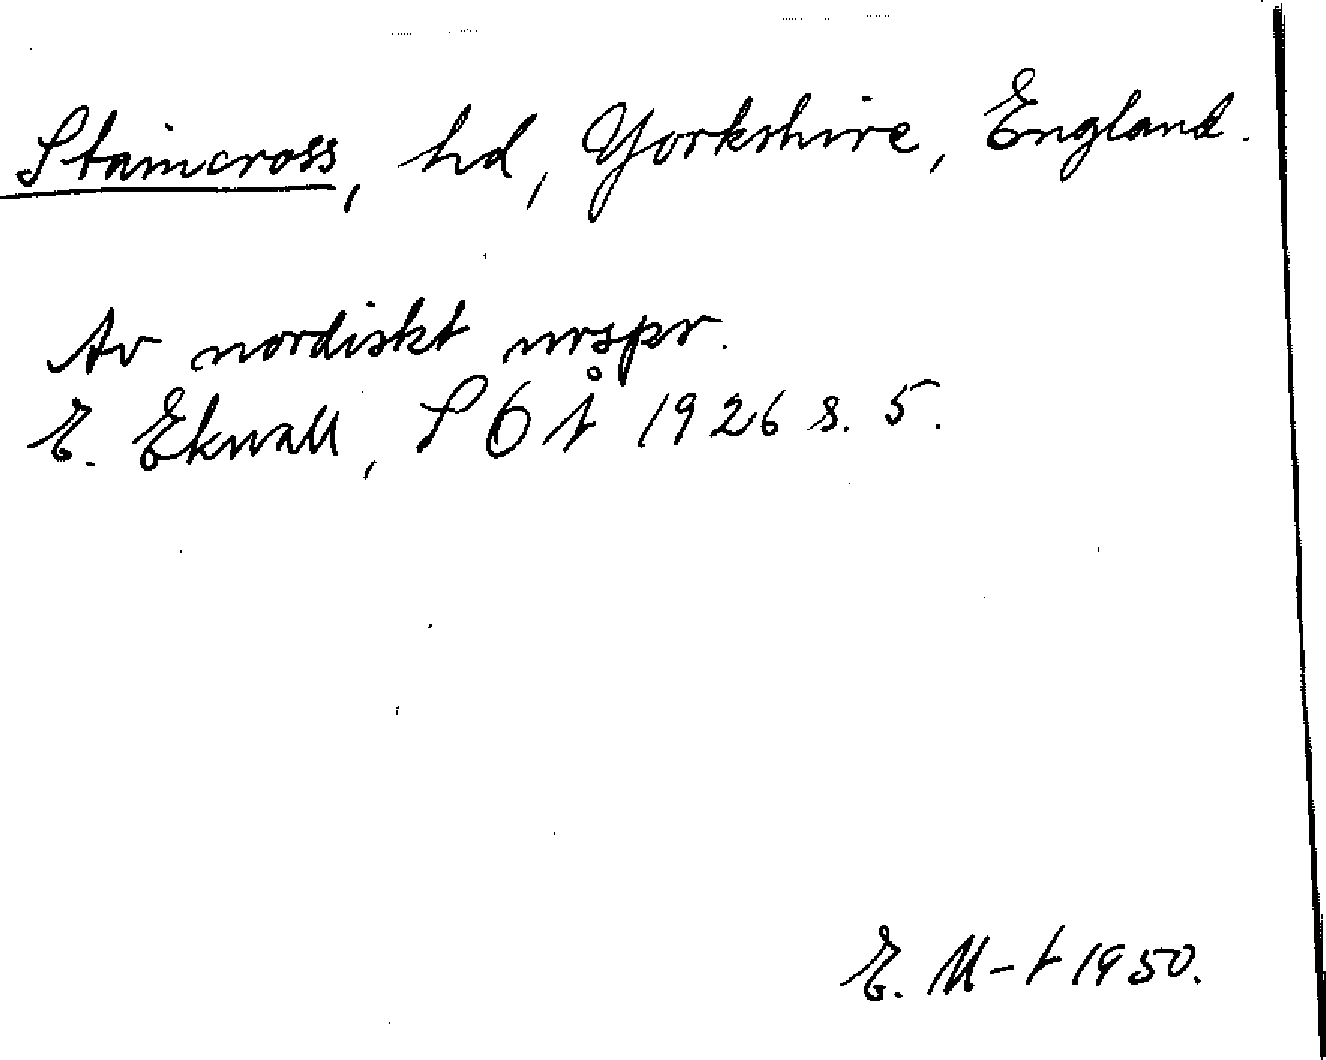 Staincross, hd, Yorkshire, England.
Av nordiskt urspr.
E. Ekwall, SOÅ 1926 s. 5.
E. M-t 1950.